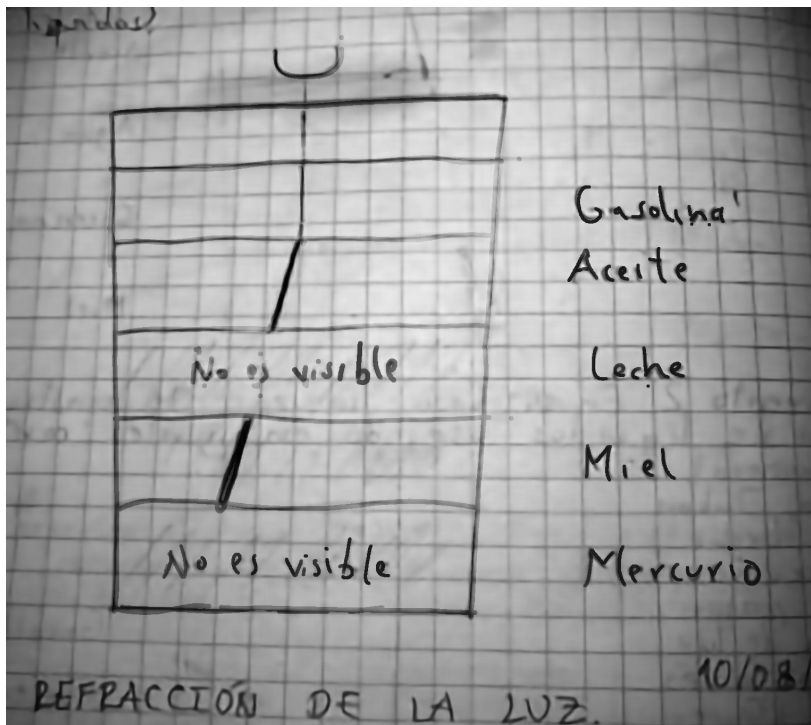 líquidos?
Gasolina
Aceite
No es visible Leche
Miel
No es visible Mercurio
10/08/
REFRACCIÓN DE LA LUZ